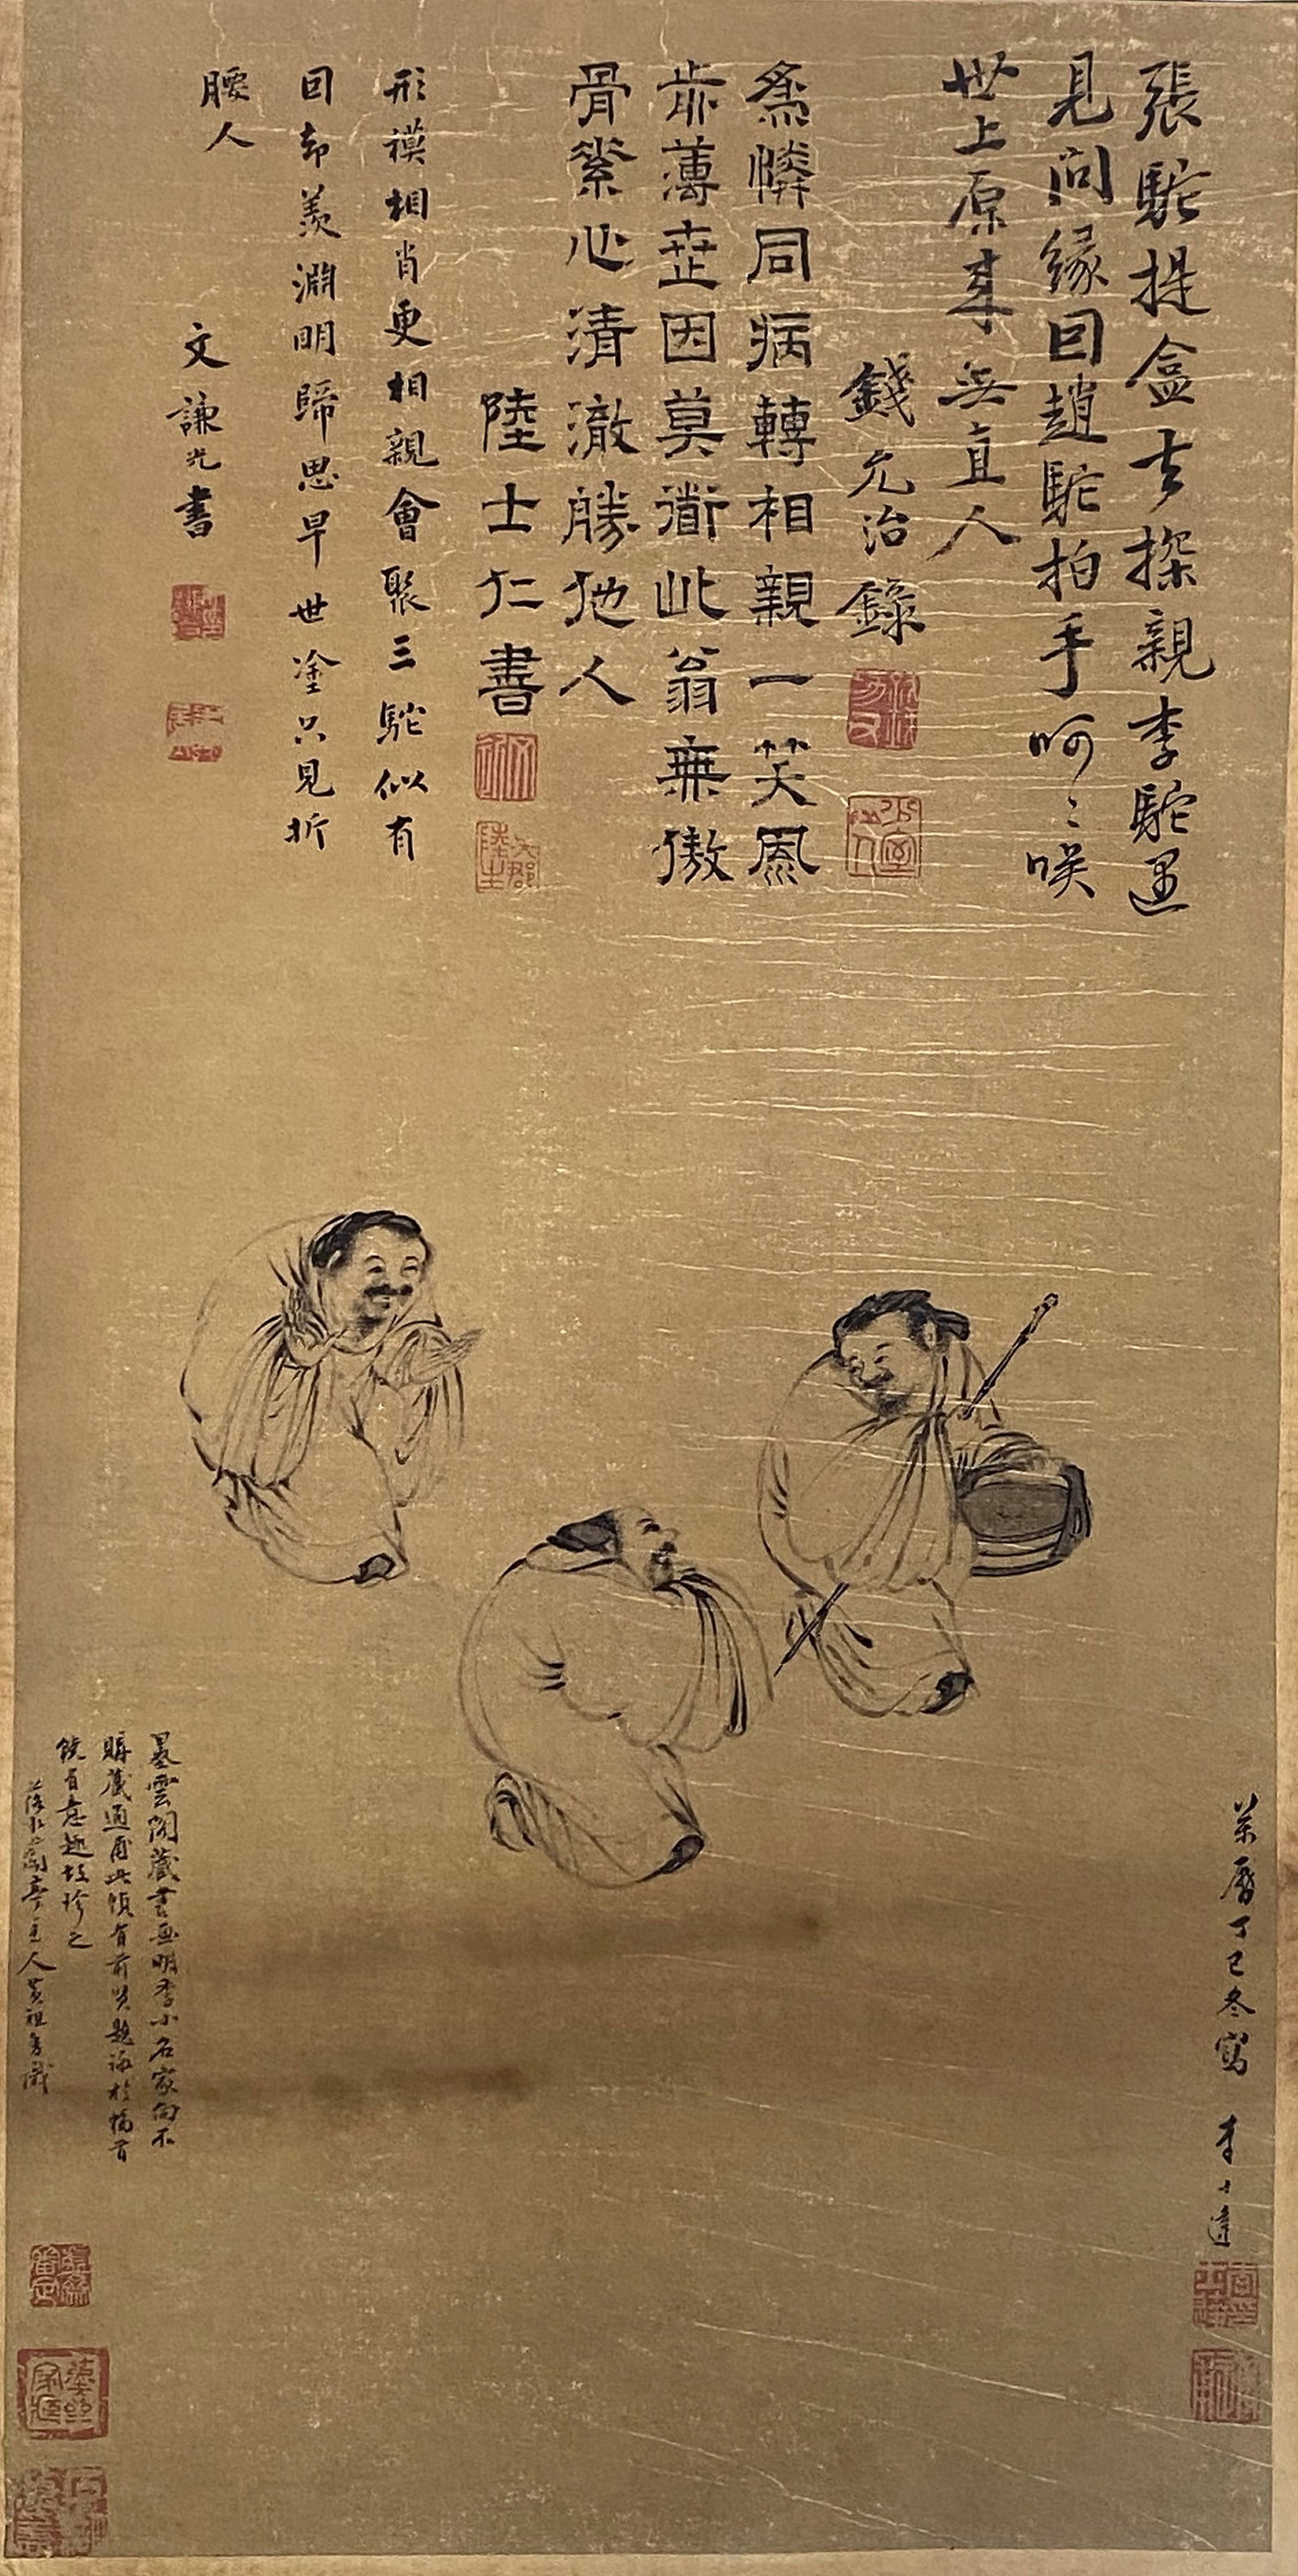 張駝提盒去探親李駝遇
見問緣因趙駝拍手呵〻咲
世上原來無直人
錢允治錄
爲憐同病轉相親一笑風
前薄世因莫衟此翁無傲
骨縈心清澈勝他人
陸士仁書
形模相肖更相親會聚三駝似有
因却羨淵明歸思早世塗只見折
腰人
文謙光書
萬曆丁巳冬寫 李士達
墨雲閣藏書画明季小名家向不
購藏適有此幀有前賢題詠於幅首
饒有意趣故珍之
主人黃祖識